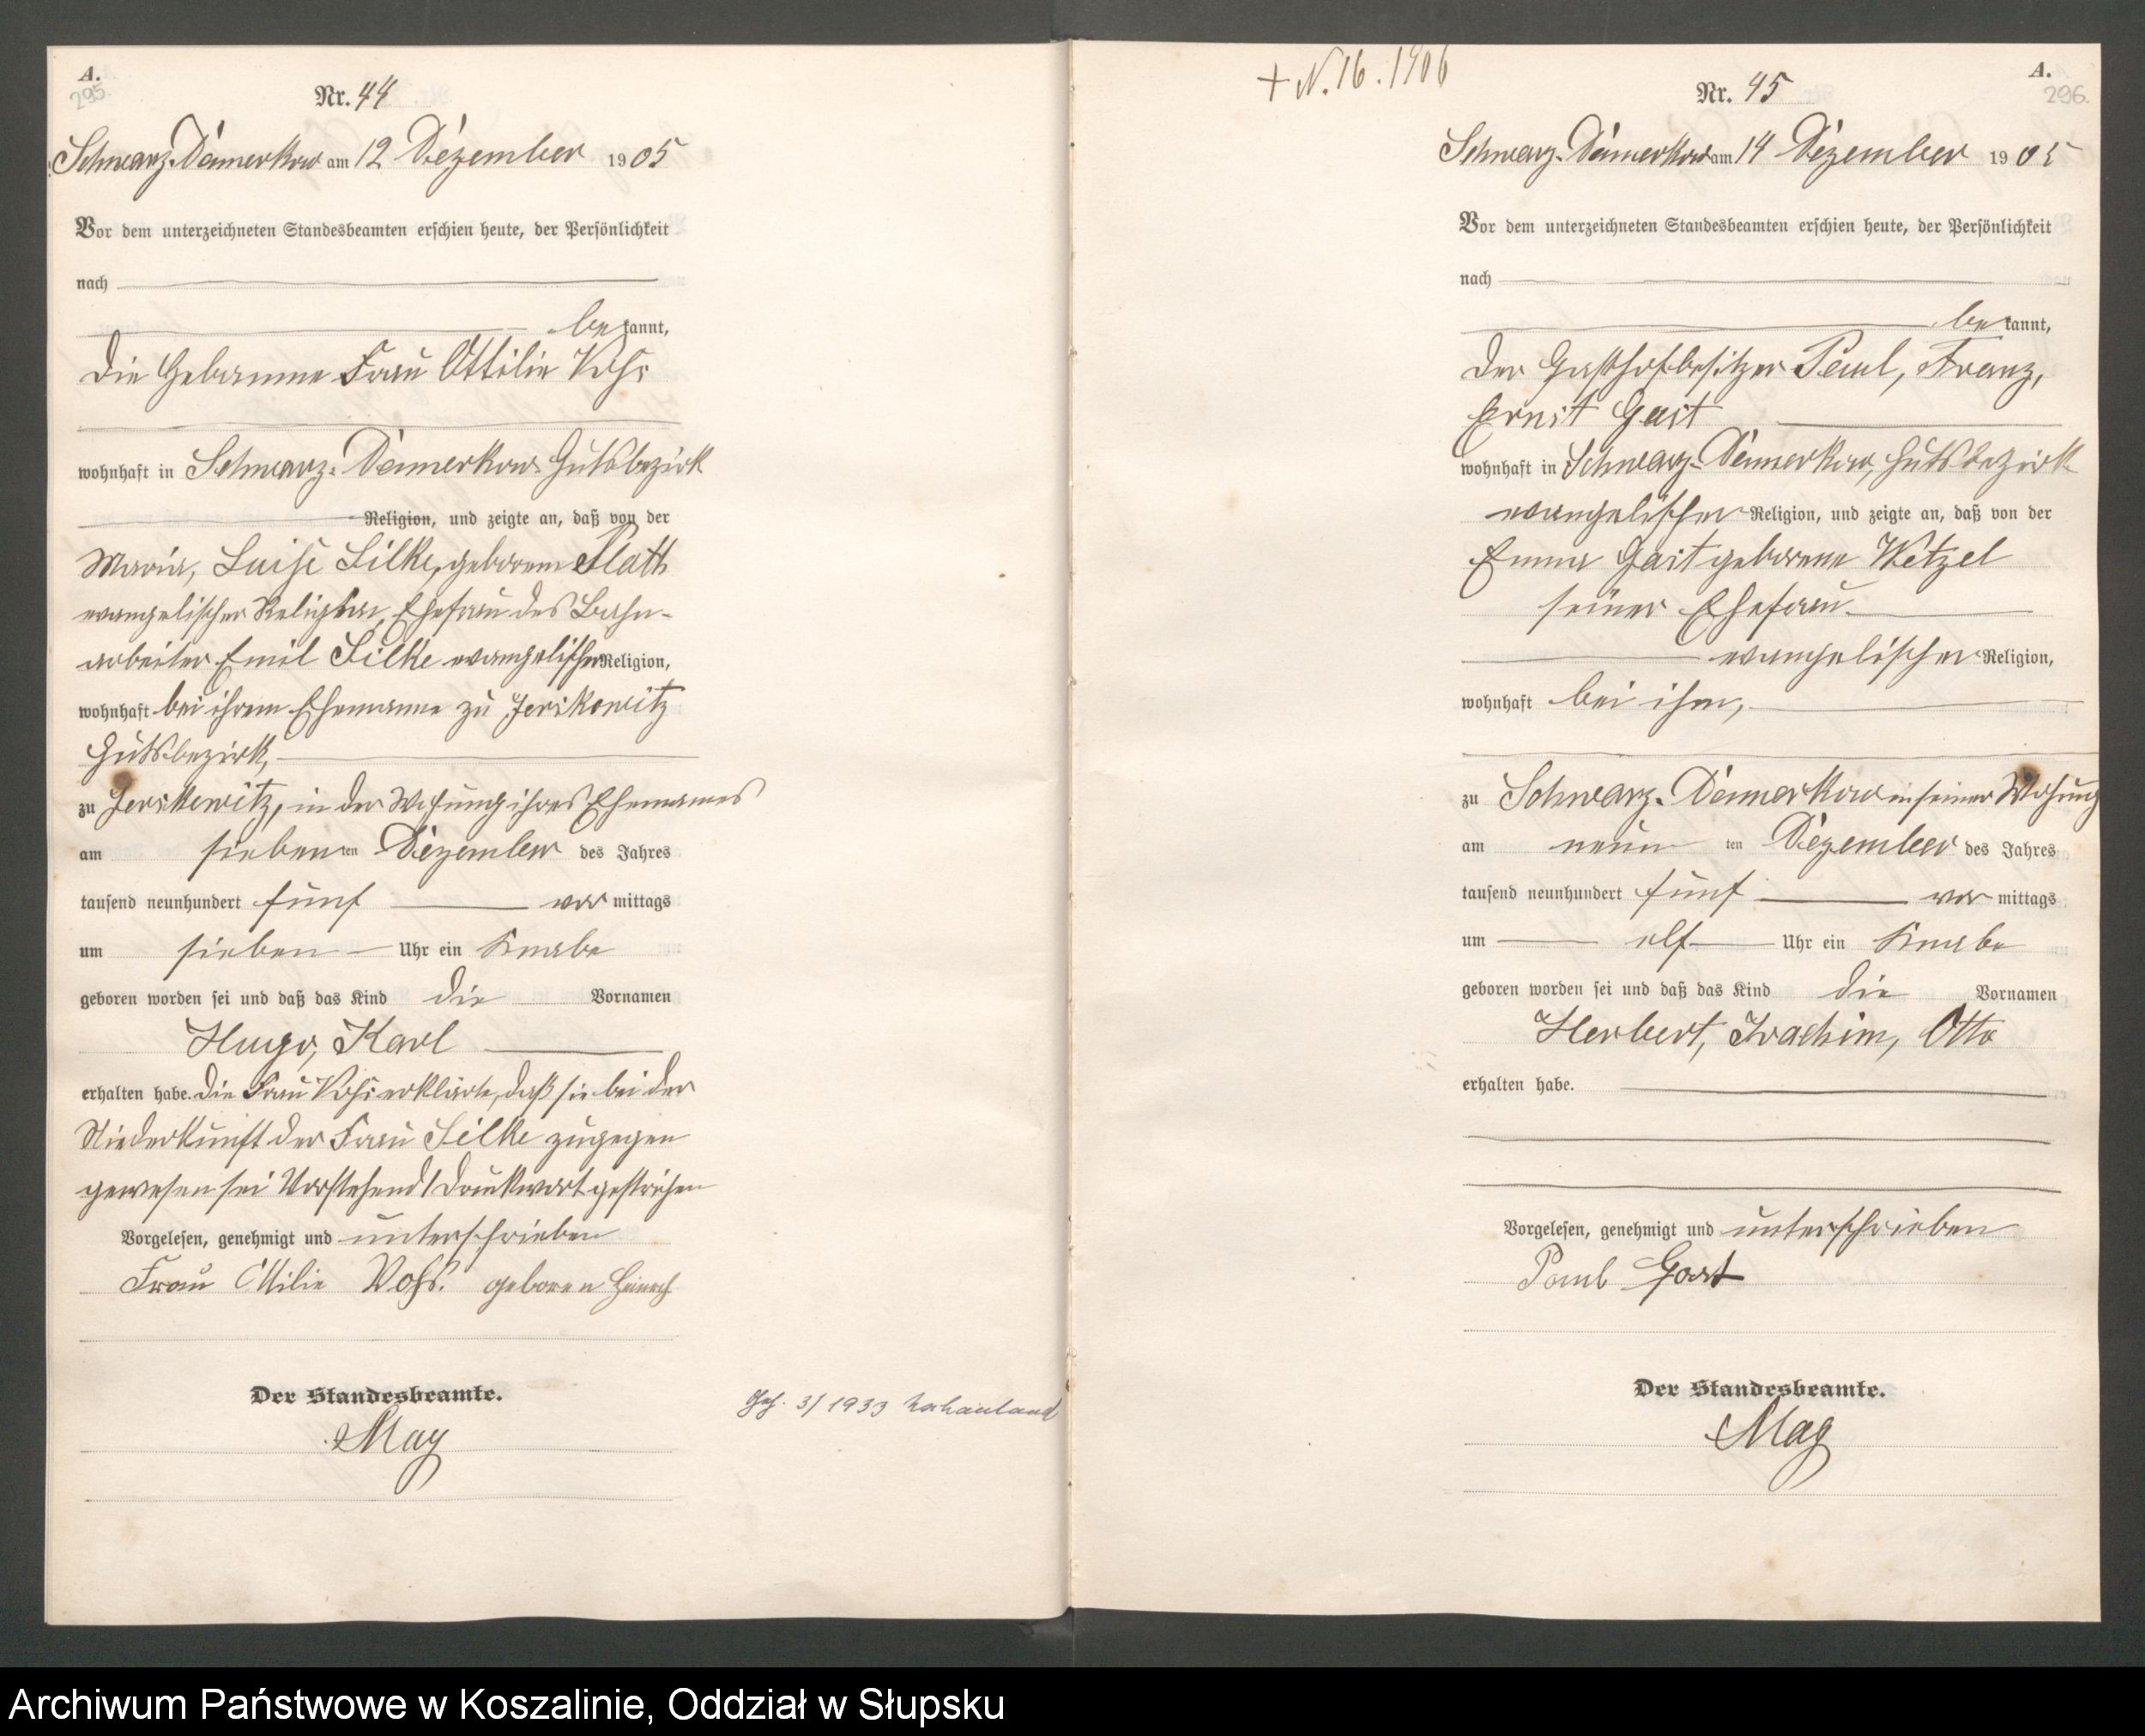 A.
295.
Nr. 44
Schwarz-Damerkow am 12 Dezember 1905
Vor dem unterzeichneten Standesbeamten erschien heute, der Persönlichkeit
nach
bekannt,
die Hebamme Frau Ottilie Vohs
wohnhaft in Schwarz-Damerkow Gutsbezirk
Religion, und zeigte an, daß von der
Maria, Luise Silke, geborene Plath
evangelischer Religion, Ehefrau des Bahn-
arbeiter Emil Silke evangelischer Religion,
wohnhaft bei ihrem Ehemanne zu Jerskewitz
Gutsbezirk,
zu Jerskewitz, in der Wohnung ihres Ehemannes
am siebenten Dezember des Jahres
tausend neunhundert fünf vormittags
um sieben Uhr ein Knabe
geboren worden sei und daß das Kind die Vornamen
Hugo, Karl
erhalten habe. Die Frau Vohs erklärte, daß sie bei der
Niederkunft der Frau Silke zugegen
gewesen sei Vorstehend 1 Druckwort gestrichen
Vorgelesen, genehmigt und unterschrieben
Frau Ottilie Vohs. geboren
Der Standesbeamte.
May
3/1933
+ N. 16. 1906
A.
296.
Nr. 45
Schwarz-Damerkow am 14 Dezember 1905
Vor dem unterzeichneten Standesbeamten erschien heute, der Persönlichkeit
nach
bekannt,
der Gasthofbesitzer Paul, Franz,
Ernst Gast
wohnhaft in Schwarz-Damerkow, Gutsbezirk
evangelischer Religion, und zeigte an, daß von der
Emma Gast geborene Wetzel
seiner Ehefrau
evangelischer Religion,
wohnhaft bei ihm,
zu Schwarz-Damerkow in seiner Wohnung
am neunten Dezember des Jahres
tausend neunhundert fünf vormittags
um elf Uhr ein Knabe
geboren worden sei und daß das Kind die Vornamen
Herbert, Joachim, Otto
erhalten habe.
Vorgelesen, genehmigt und unterschrieben
Paul Gast
Der Standesbeamte.
May
Archiwum Państwowe w Koszalinie, Oddział w Słupsku